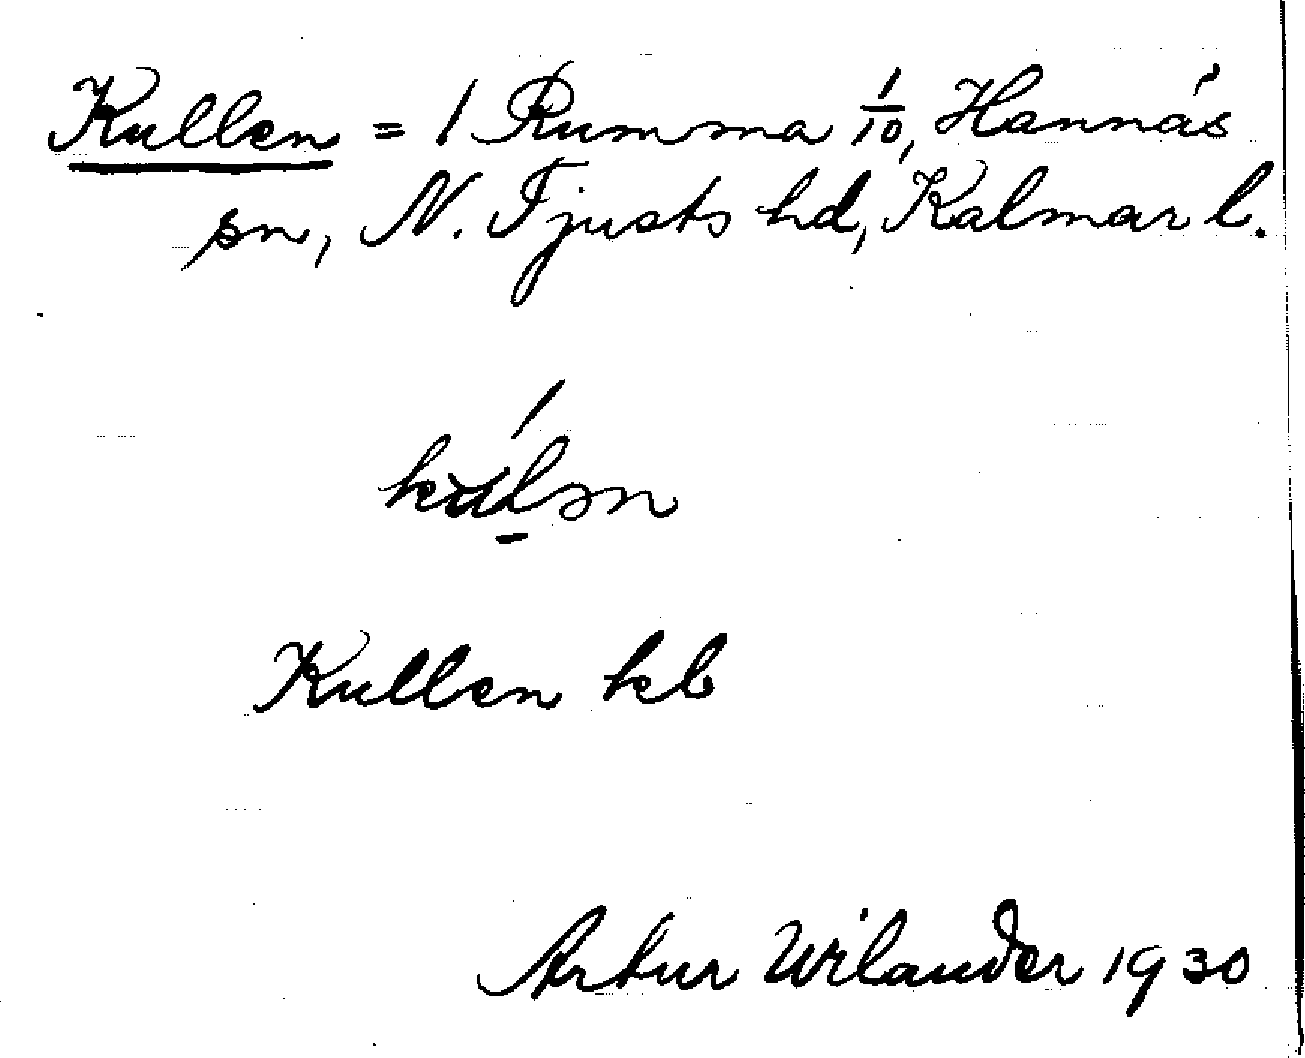 Kullen = 1 Rumma 1/10, Hannäs
sn, N. Tjusts hd, Kalmar l.
Kullen hl
Artur Wilander 1930